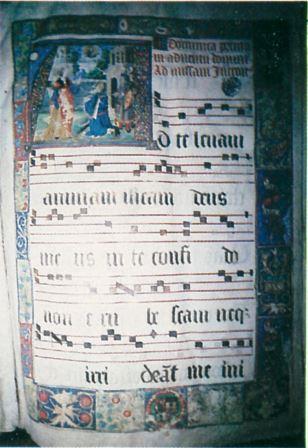 Dominica prima
in adventu domini
Ad missam Introit
d te levavi
animam meam deus
me us in te confi do
non e ru be scam neq;
irri deāt me ini